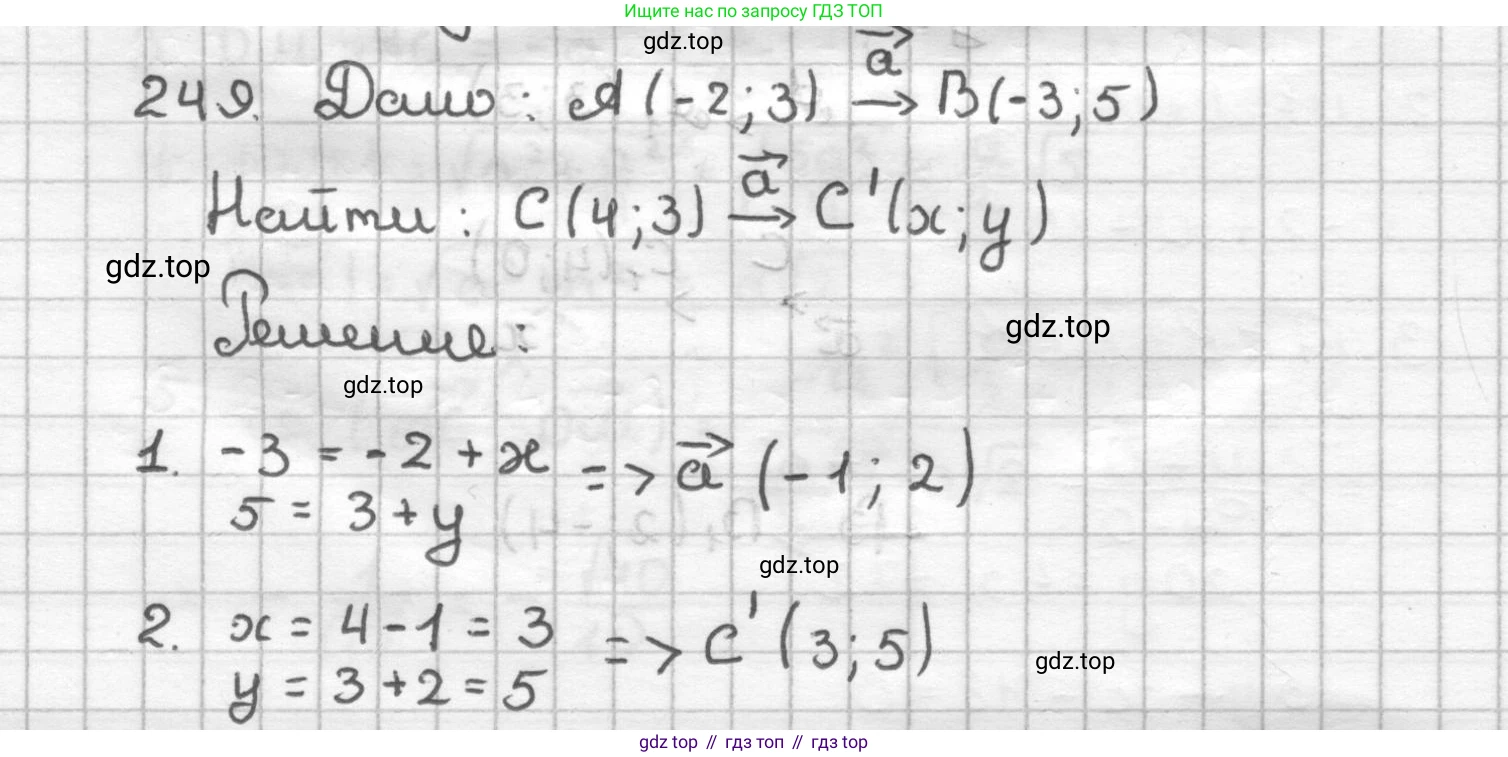 Ищите нас по запросу ГДЗ ТОП
gdz.top
249. Дано: A(-2;3) →a⃗ B(-3;5)
Найти: C(4;3) →a⃗ C'(x;y)
gdz.top
Решение:
gdz.top
gdz.top
1. -3 = -2 + x
5 = 3 + y
=> a⃗ (-1; 2)
gdz.top
2. x = 4 - 1 = 3
y = 3 + 2 = 5
=> C'(3;5)
gdz.top
gdz top // гдз топ // гдз top